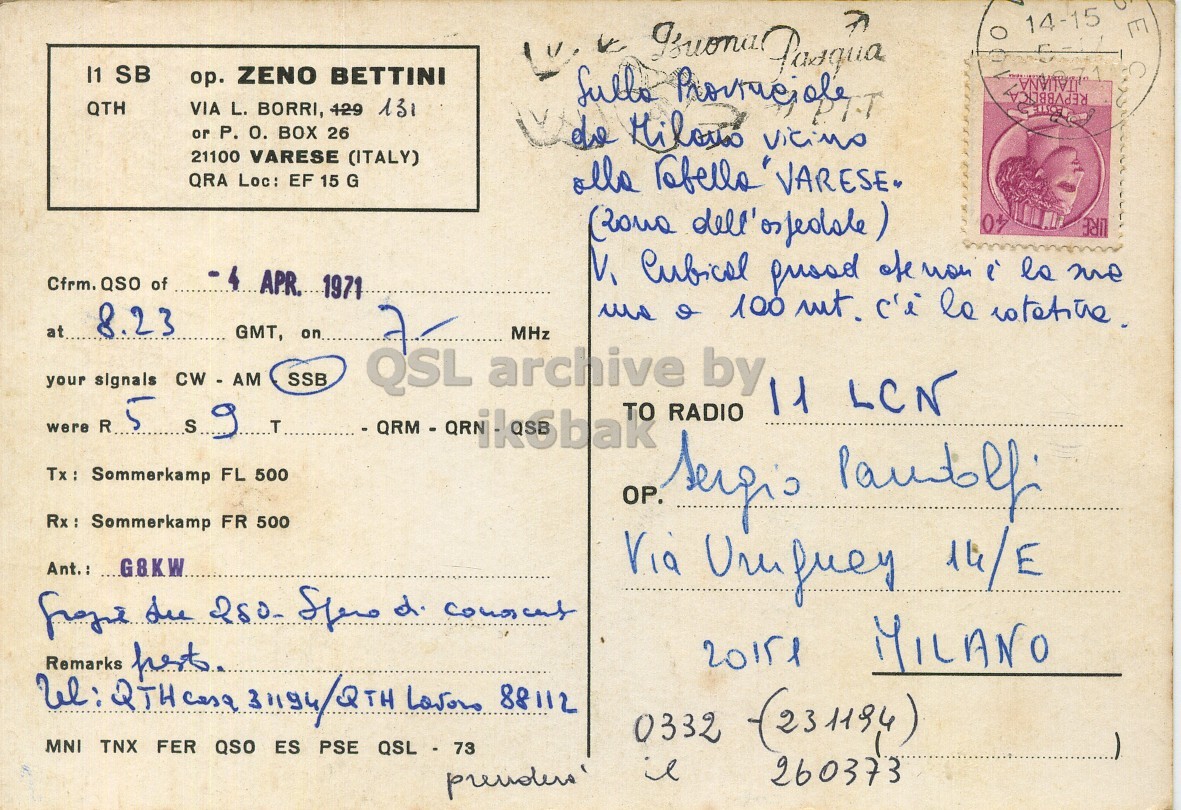 I1 SB op. ZENO BETTINI
QTH VIA L. BORRI, 129 131
or P. O. BOX 26
21100 VARESE (ITALY)
QRA Loc: EF 15 G
Cfrm. QSO of - 4 APR. 1971
at 8.23 GMT, on 7.- MHz
your signals CW - AM - SSB
were R 5 S 9 T - QRM - QRN - QSB
Tx: Sommerkamp FL 500
Rx: Sommerkamp FR 500
Ant.: G8KW
QSO - Spero di
Remarks presto.
Tel: QTH casa 31194/QTH Lavoro 88112
MNI TNX FER QSO ES PSE QSL - 73
prenderà il 260373
Buona Pasqua
PTT
14-15
REPVBBLICA
ITALIANA
LIRE 40
Sulla Provinciale
da Milano vicino
alla Tabella "VARESE"
(zona dell'ospedale)
V. Cubical quad che non è la mia
ma a 100 mt. c'è la rotativa.
TO RADIO I1 LCN
OP. Sergio Pandolfi
Via Uruguay 14/E
20151 MILANO
0332 - (231194)
QSL archive by
ik6bak